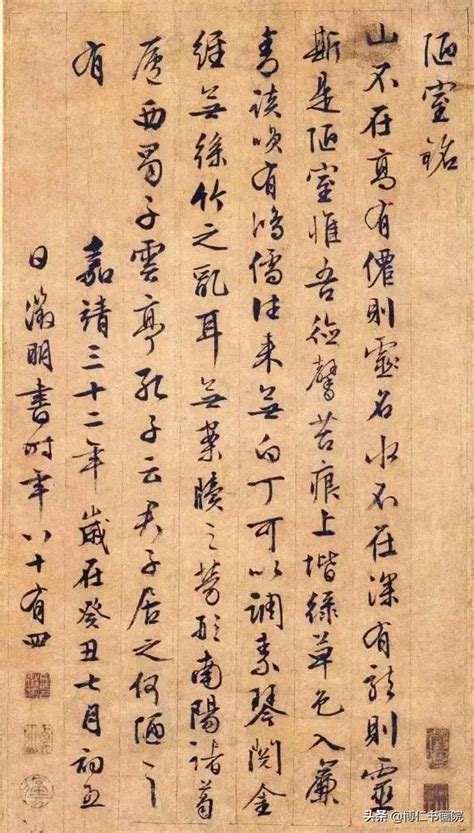 陋室銘
山不在高有僊則靈名水不在深有龍則靈
斯是陋室惟吾德馨苔痕上堦綠草色入簾
青談咲有鴻儒往来無白丁可以調素琴閱金
經無絲竹之亂耳無案牘之勞形南陽諸葛
廬西蜀子雲亭孔子云君子居之何陋之
有
嘉靖三十二年歲在癸丑七月初五
日徵明書時年八十有四
头条 @博仁书画院